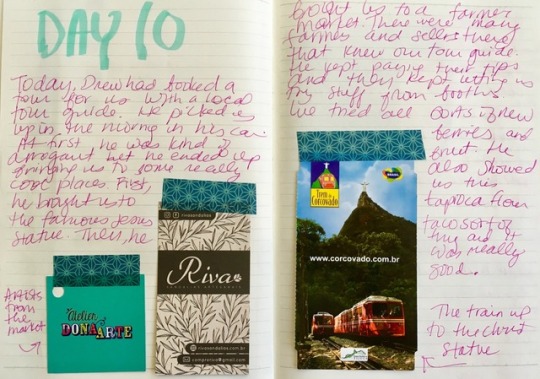 DAY 10
Today, Drew had booked a
tour for us with a local
tour guide. He picked us
up in the morning in his car.
At first he was kind of
arrogant but he ended up
bringing us to some really
cool places. First,
he brought us to
the famous Jesus
statue. Then, he
Artists
from
the
market
Atelier
DONA ARTE
rivasandalias
Riva
rivasandalias.com.br
brought us to a farmer
market. There were many
farmers and sellers there
that knew our tour guide.
He kept paying them tips
and they kept letting us
try stuff from booths.
We tried all sorts of new
berries and
fruit. He
also showed
us this
tapioca flour
taco sort of
thing and it
was really
good.
Trem do
Corcovado
BRASIL
www.corcovado.com.br
The train up
to the Christ
statue